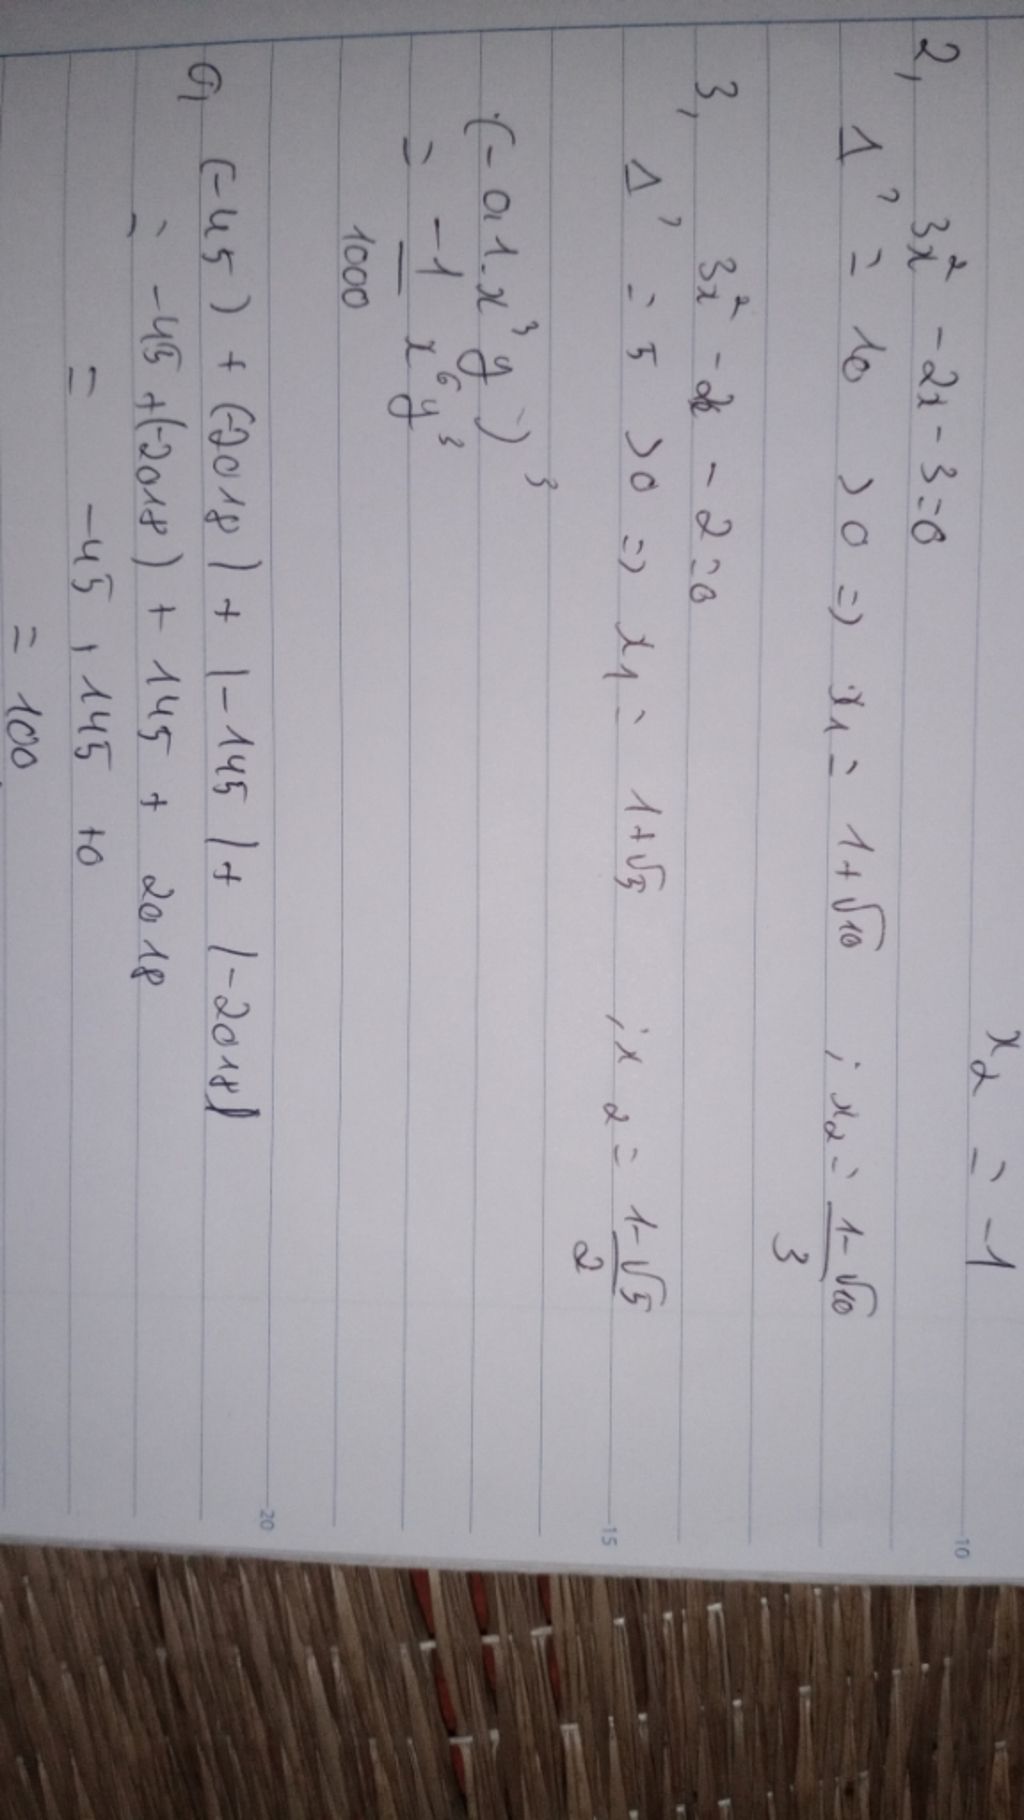 x₂ = -1
2, 3x² - 2x - 3 = 0
Δ' = 10 > 0 => x₁ = 1+√10 ; x₂ = (1-√10)/3
3, 3x² - 2x - 2 = 0
Δ' = 5 > 0 => x₁ = 1+√5 ; x₂ = (1-√5)/2
(-0,1.x³y)³
= -1/1000 x⁶y³
(-45) + (-2018) + |-145| + |-2018|
= -45 + (-2018) + 145 + 2018
= -45 + 145 + 0
= 100
10
15
20